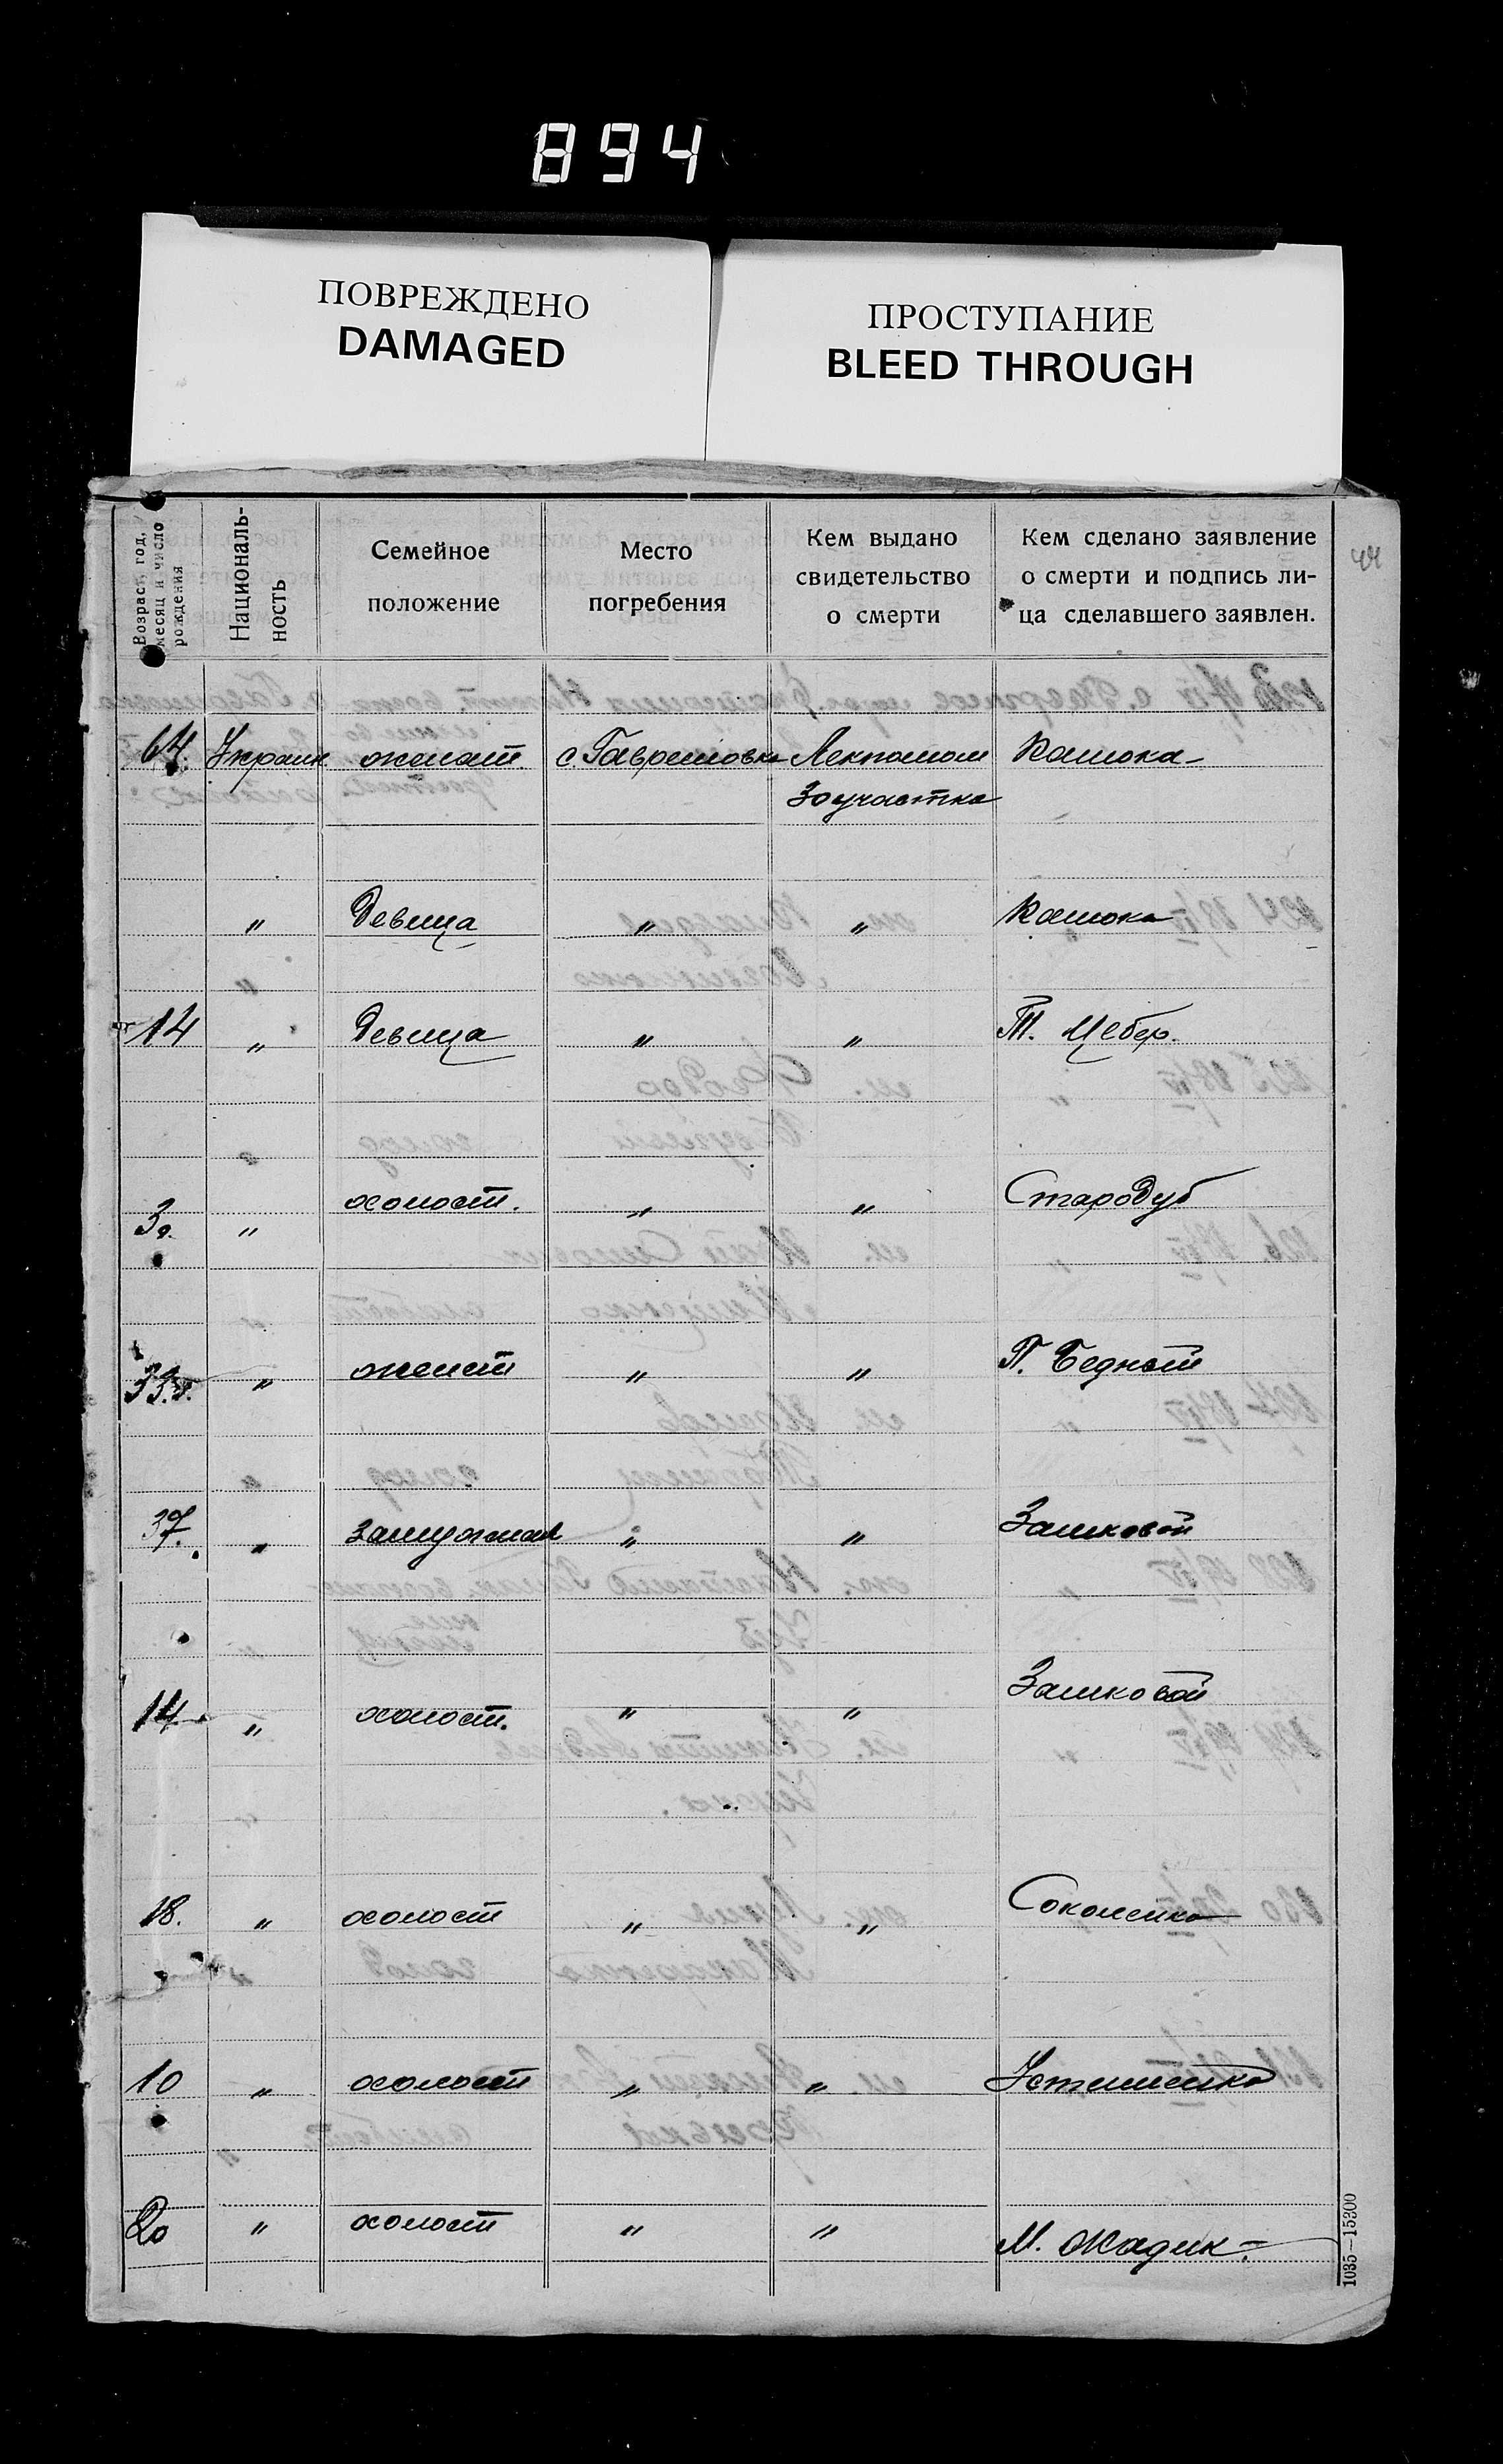 894
ПОВРЕЖДЕНО
DAMAGED
ПРОСТУПАНИЕ
BLEED THROUGH
44
Возраст, год, месяц и число рождения
Националь-
ность
Семейное
положение
Место
погребения
Кем выдано
свидетельство
о смерти
Кем сделано заявление
о смерти и подпись ли-
ца сделавшего заявлен.
64. Украин женат с. Гавриловка Лекпомом
3о участка
" Девица " "
14 " Девица " " Т. Цебер.
3г. " холост. " " Стародуб
33г. " женат " " П. Бедном
37. " замужная " " Зашковой
14 " холост. " " Зашковой
18. " холост " " Соколенко
10 " холост " " Устименко
20 " холост " " М. Жадик.
1035—15300